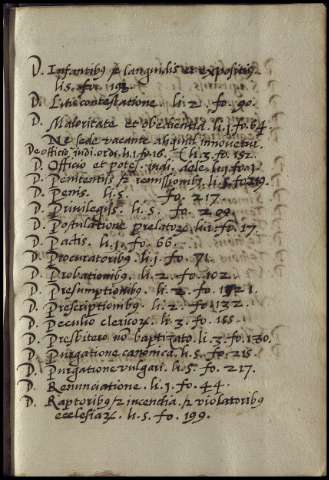 D. Infantibꝰ ⁊ languidis et expositis.
li. 5. fo. 193.
D. Litis contestatione. li. 2. fo. 90.
D. Maioritate et obedientia. li. 1. fo. 64
Ne sede vacante aliquid innovetur.
De officio iudi. ordi. li. 1. fo. 16. li. 3. fo. 152.
D. Officio et potes. iudi. dele. li. 1. fo.
D. Penitentiis ⁊ remissionibꝰ. li. 5. fo. 219.
D. Penis. li. 5. fo. 217.
D. Privilegiis. li. 5. fo. 209.
D. Postulatione prelatoꝝ. li. 1. fo. 17.
D. Pactis. li. 1. fo. 66.
D. Procuratoribꝰ. li. 1. fo. 71.
D. Probationibꝰ. li. 2. fo. 102.
D. Presumptionibꝰ. li. 2. fo. 121.
D. Prescriptionibꝰ. li. 2. fo. 132.
D. Peculio clericoꝝ. li. 3. fo. 155.
D. Presbitero nō baptizato. li. 3. fo. 130.
D. Purgatione canonica. li. 5. fo. 215.
D. Purgatione vulgari. li. 5. fo. 217.
D. Renunciatione. li. 1. fo. 44.
D. Raptoribꝰ ⁊ incendia. ⁊ violatoribꝰ
ecclesiaꝝ. li. 5. fo. 199.